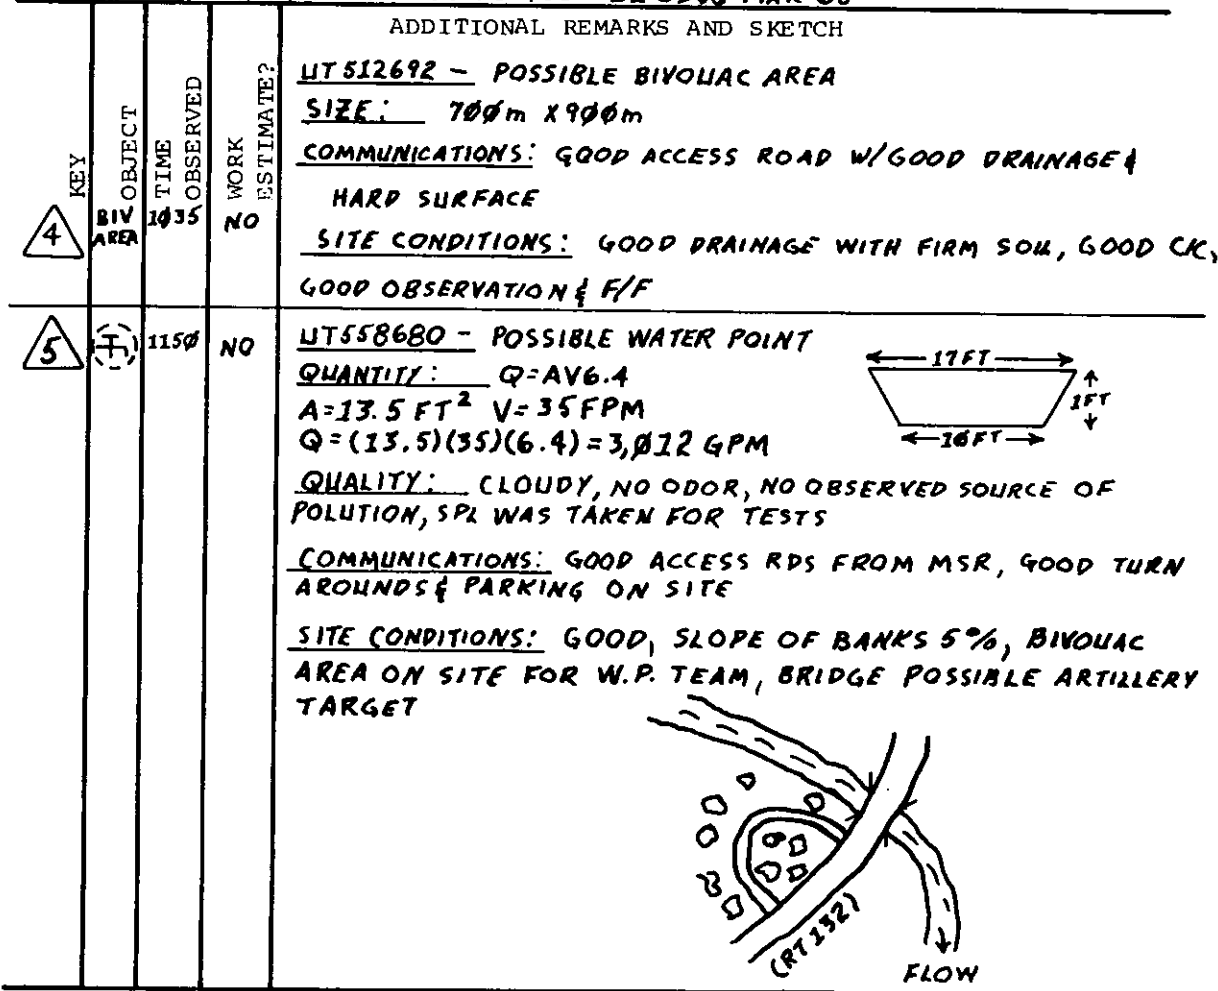 ADDITIONAL REMARKS AND SKETCH
KEY
OBJECT
TIME OBSERVED
WORK ESTIMATE?
4
BIV AREA
1Ø35
NO
UT512692 - POSSIBLE BIVOUAC AREA
SIZE: 7ØØm X 9ØØm
COMMUNICATIONS: GOOD ACCESS ROAD W/GOOD DRAINAGE &
HARD SURFACE
SITE CONDITIONS: GOOD DRAINAGE WITH FIRM SOIL, GOOD C/C,
GOOD OBSERVATION & F/F
5
115Ø
NO
UT558680 - POSSIBLE WATER POINT
QUANTITY: Q=AV6.4
A=13.5 FT² V=35FPM
Q=(13.5)(35)(6.4)=3,Ø12 GPM
17FT
1FT
1ØFT
QUALITY: CLOUDY, NO ODOR, NO OBSERVED SOURCE OF
POLUTION, SPL WAS TAKEN FOR TESTS
COMMUNICATIONS: GOOD ACCESS RDS FROM MSR, GOOD TURN
AROUNDS & PARKING ON SITE
SITE CONDITIONS: GOOD, SLOPE OF BANKS 5%, BIVOUAC
AREA ON SITE FOR W.P. TEAM, BRIDGE POSSIBLE ARTILLERY
TARGET
(RT132)
FLOW